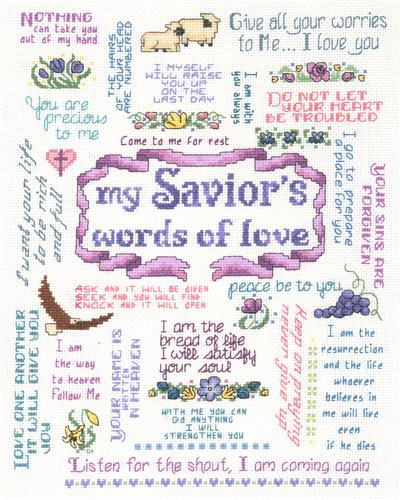 NOTHING
can take you
out of my hand
THE HAIRS
OF YOUR HEAD
ARE NUMBERED
Give all your worries
to Me... I love you
I MYSELF
WILL RAISE
YOU UP
ON THE
LAST DAY
I am with
you always
DO NOT LET
YOUR HEART
BE TROUBLED
You are
precious
to me
Come to me for rest
I want your life
to be rich
and full
I go to prepare
a place for you
YOUR SINS ARE
FORGIVEN
my Savior's
words of love
ASK AND IT WILL BE GIVEN
SEEK AND YOU WILL FIND
KNOCK AND IT WILL OPEN
peace be to you
LOVE ONE ANOTHER
IT WILL GIVE YOU
JOY
I am
the way
to heaven
Follow Me
YOUR NAME IS
WRITTEN
IN HEAVEN
I am the
bread of life
I will satisfy
your soul
Keep on praying
never give up
I am the
resurrection
and the life
whoever
believes in
me will live
even
if he dies
WITH ME YOU CAN
DO ANYTHING
I WILL
STRENGTHEN YOU
Listen for the shout, I am coming again